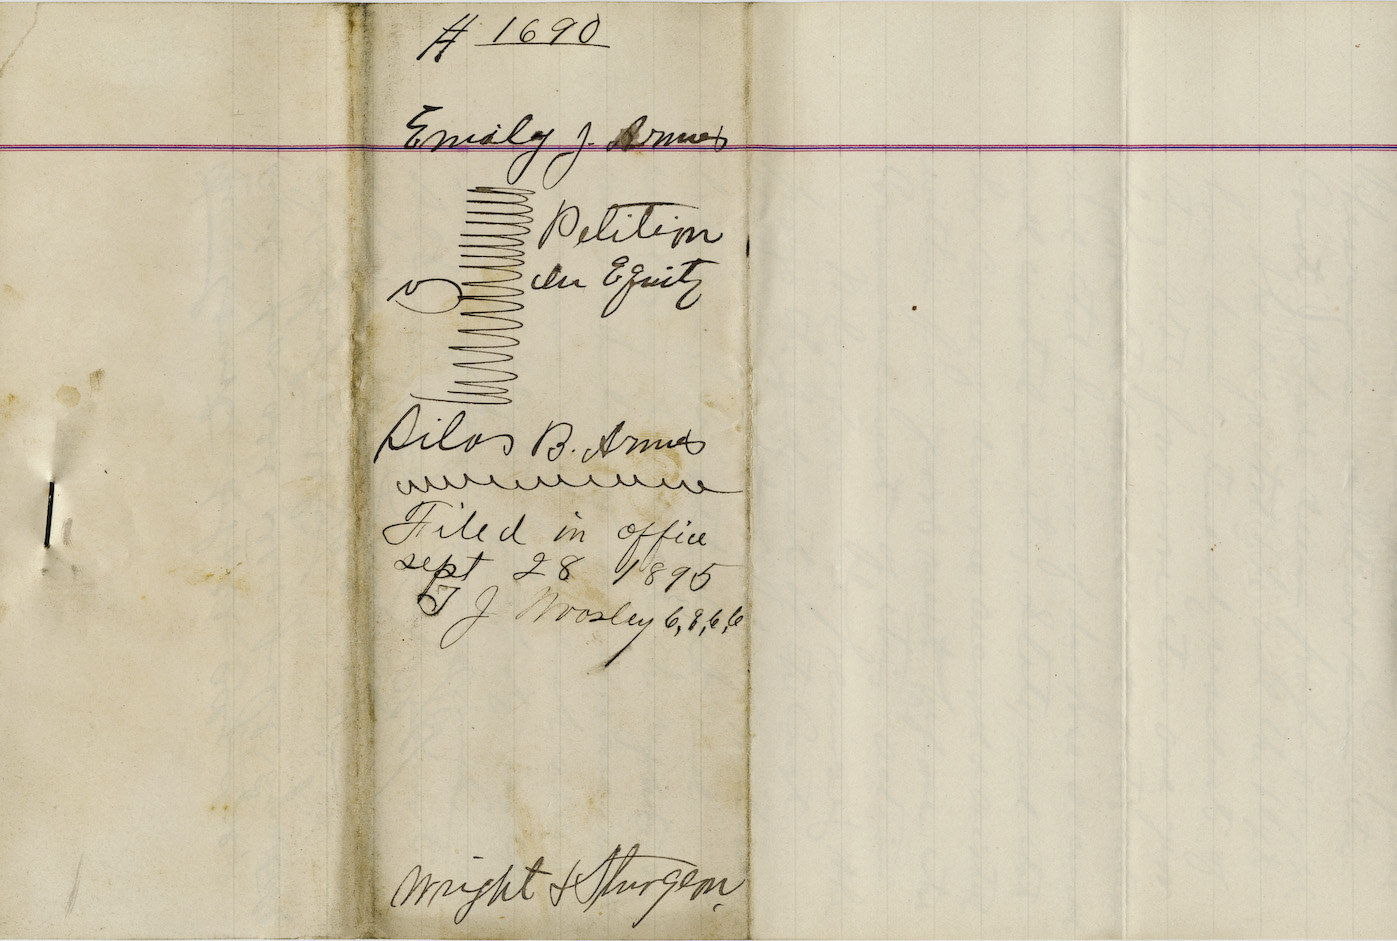 # 1690
Emily J. Armes
Petition
v
In Equity
Silas B. Armes
Filed in office
Sept 28 1895
T J Moseley C,C,C,C
Wright & Sturgeon.